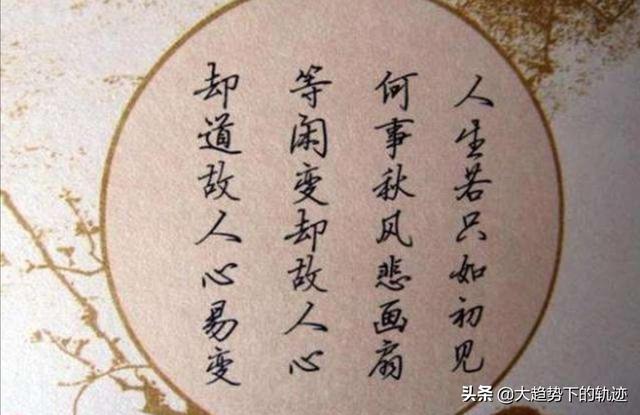 人生若只如初见
何事秋风悲画扇
等闲变却故人心
却道故人心易变
头条 @大趋势下的轨迹